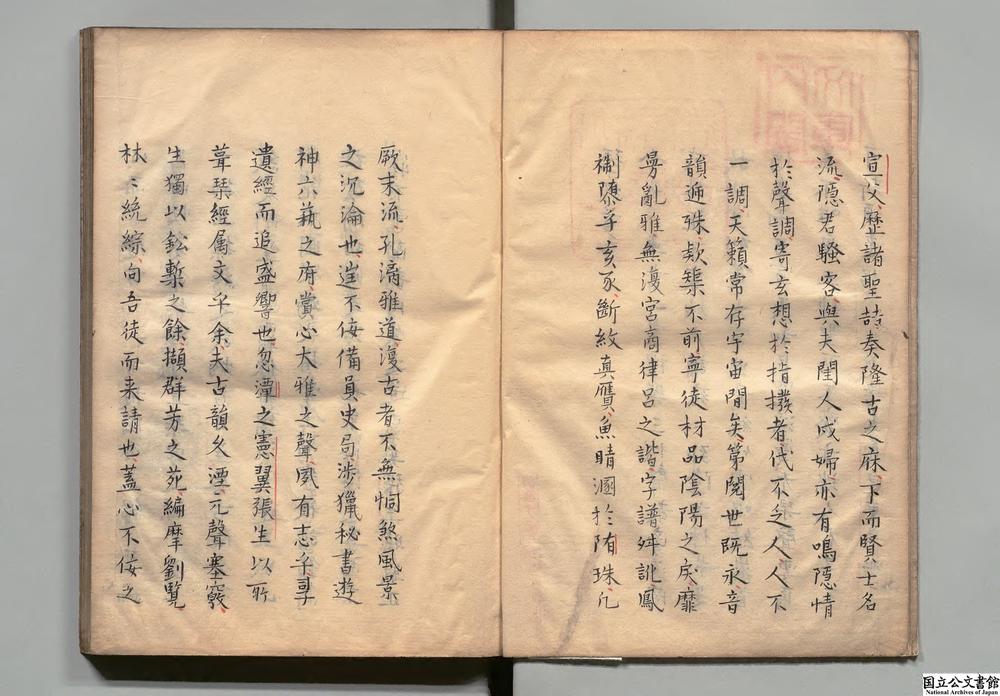 宣父歷諸聖喆奏隆古之庥下而賢士名
流隱君騷客與夫閨人戍婦亦有鳴隱情
於聲調寄玄想於指撥者代不乏人人不
一調天籟常存宇宙間矣第閱世既永音
韻遞殊欵築不前寧徒材品陰陽之戾靡
曼亂雅無復宮商律呂之諧字譜舛訛鳳
禰隳乎亥豕斷紋真贋魚睛溷於隋珠凡
厥末流孔滴雅道復古者不無恫煞風景
之沉淪也逆不侫備員史局涉獵秘書遊
神六藝之府賞心大雅之聲夙有志乎尋
遺經而追盛響也忽潭之憲翼張生以所
葺琹經属文乎余夫古韻久湮元聲塞竅
生獨以鈆槧之餘擷群芳之苑編摩劉覽
林〻統綜向吾徒而来請也蓋心不侫之
国立公文書館
National Archives of Japan